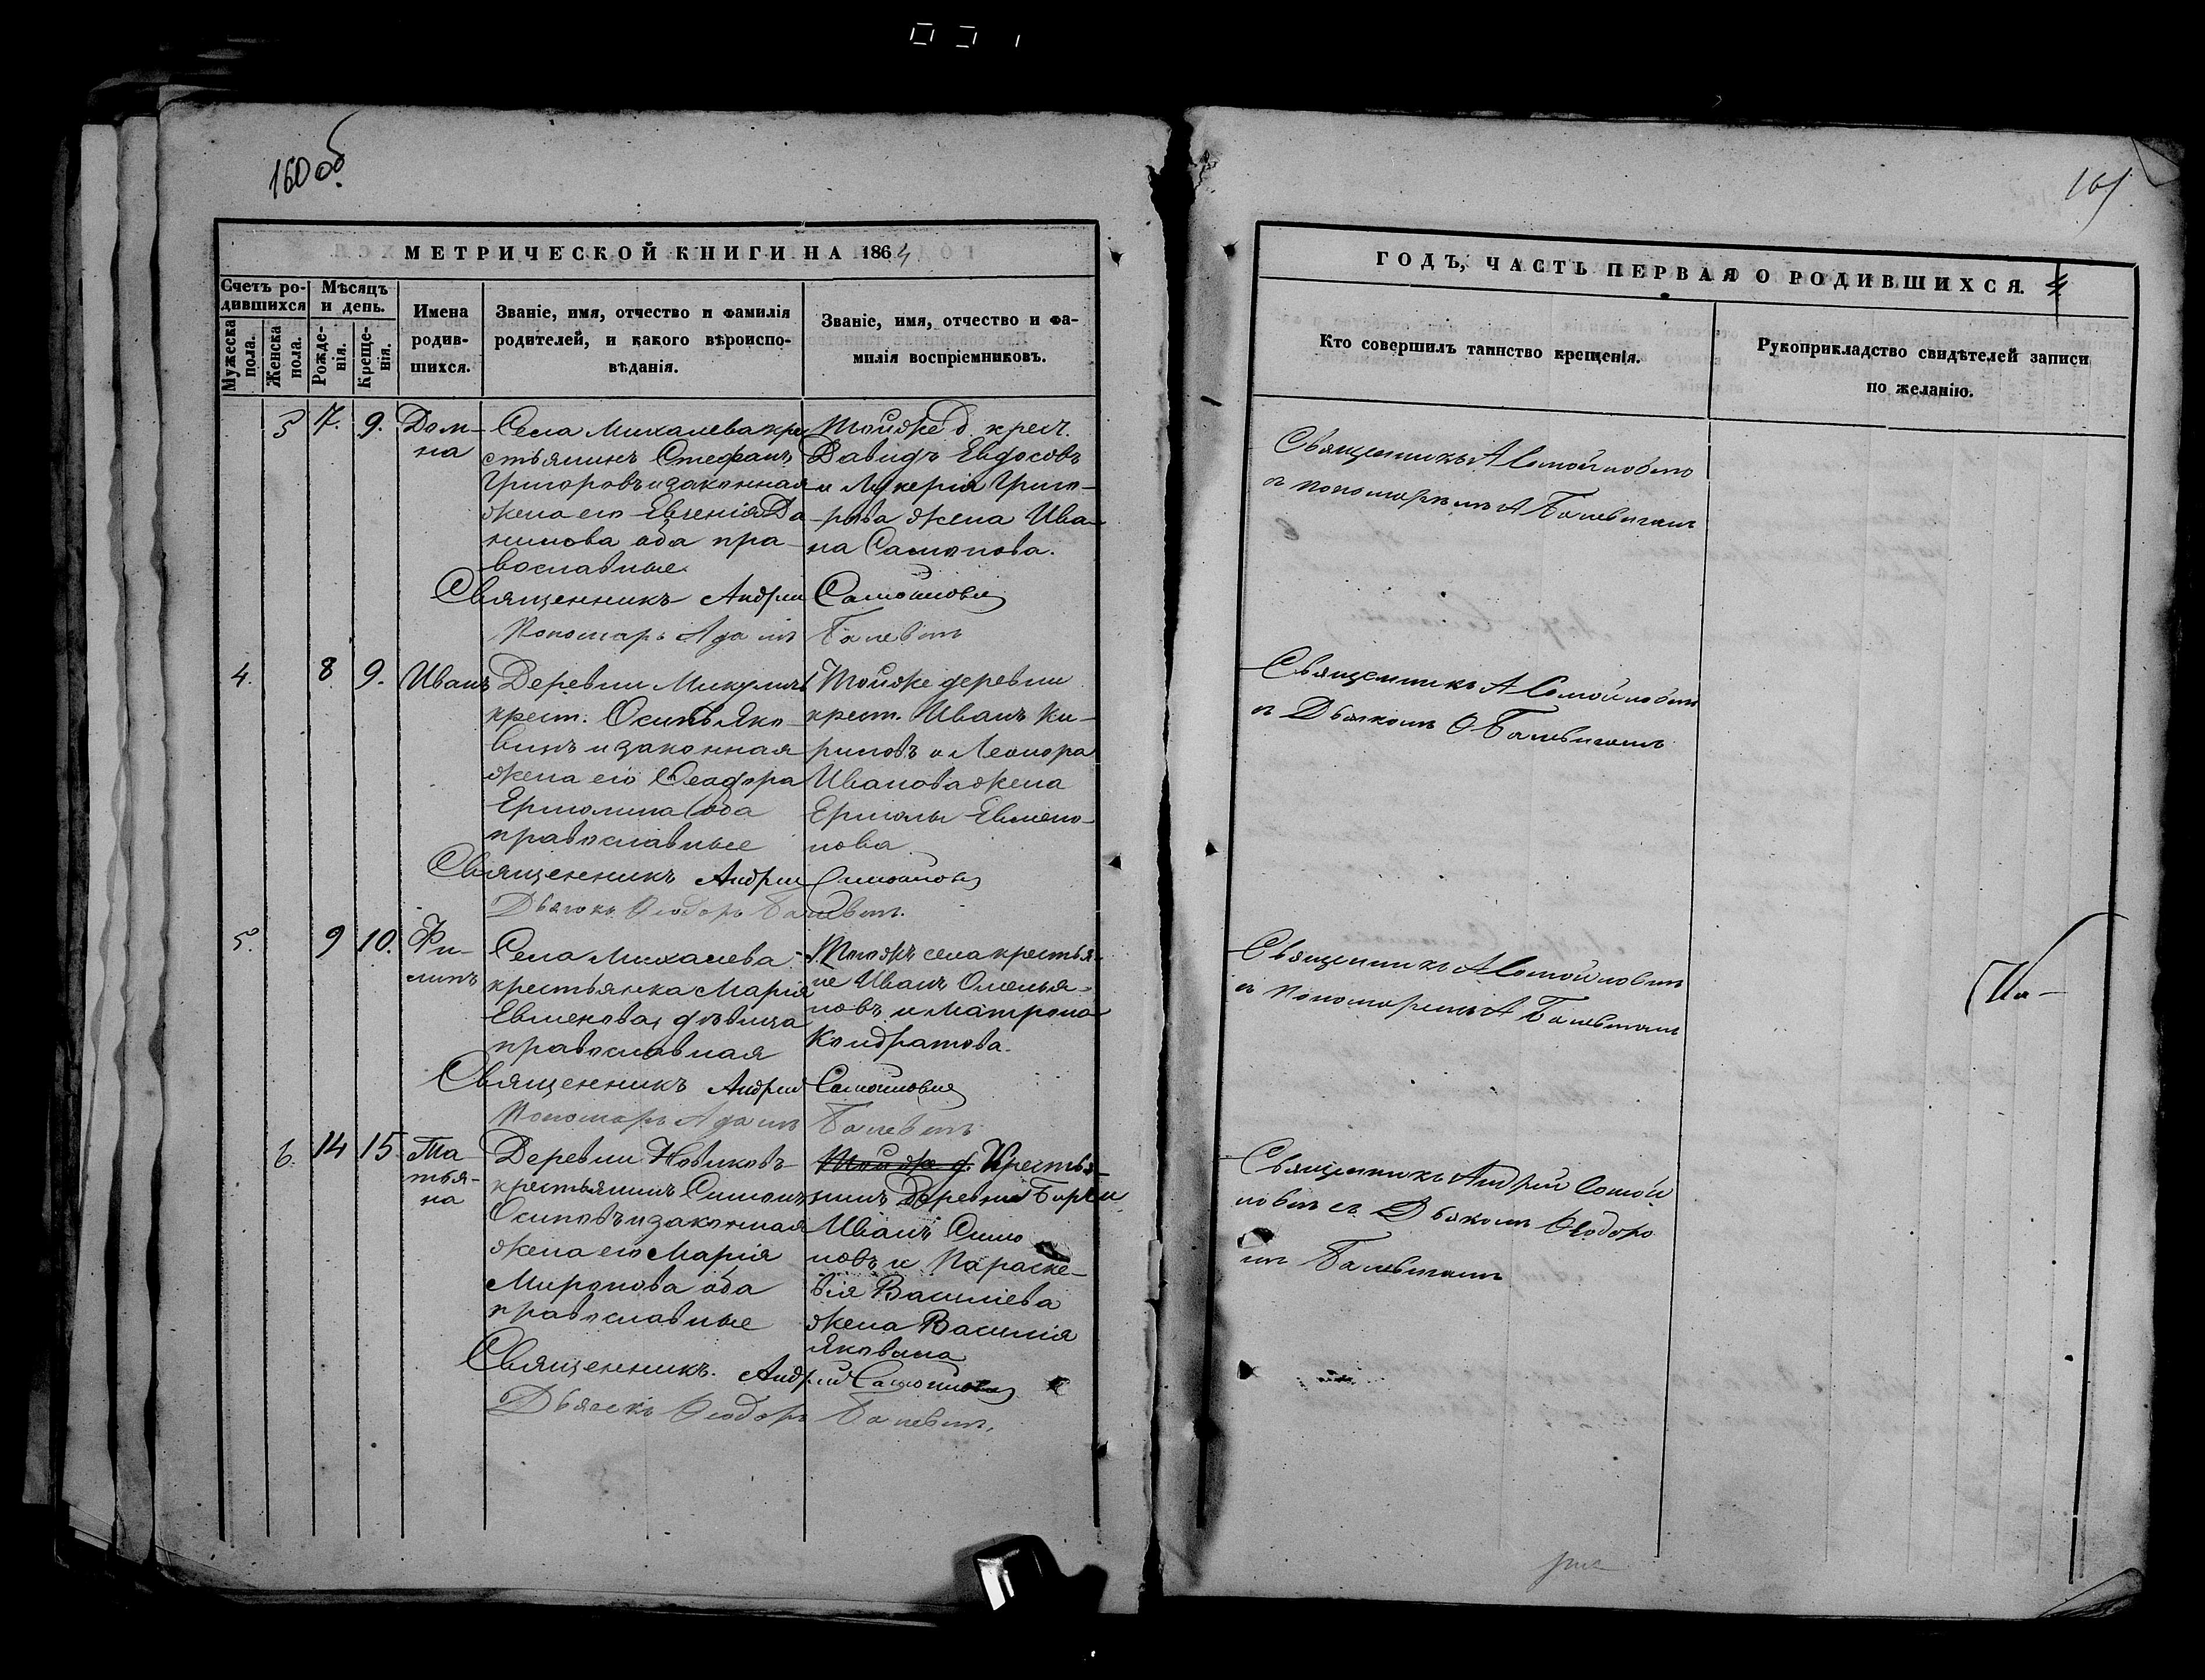 160 об
МЕТРИЧЕСКОЙ КНИГИ НА 1864
Счетъ ро-
дившихся
Мѣсяцъ
и день.
Мужеска
пола.
Женска
пола.
Рожде-
нія.
Креще-
нія.
Имена
родив-
шихся.
Званіе, имя, отчество и фамилія
родителей, и какого вѣроиспо-
вѣданія.
Званіе, имя, отчество и фа-
милія воспріемниковъ.
5 7. 9.
Дом-
на
Села Михалева кре
стьянинъ Стефанъ
Григоровъ и законная
жена его Евгенія Да
нилова оба пра-
вославные
Тойже д. крест.
Давидъ Евдосовъ
и Лукерія Григо-
рова жена Ива-
на Самонова.
Священникъ Андрей Самойловичъ
Пономарь Адамъ Балевичъ
4. 8 9.
Иванъ
Деревни Микуличъ
крест. Осипъ Яко-
винъ и законная
жена его Ѳеадора
Ермолина оба
православные
Тойже деревни
крест. Иванъ Ки-
риловъ и Леонора
Иванова жена
Ермолы Евмено-
нова
Священникъ Андрей Самойловичъ
Дьячокъ Ѳеодоръ Балевичъ.
5. 9 10.
Фи-
липъ
Села Михалева
крестьянка Марія
Евменова, дѣвица
православная
Тогожъ села крестья-
не Иванъ Омелья-
новъ и Матрона
Кондратова.
Священникъ Андрей Самойловичъ
Пономарь Адамъ Балевичъ
6. 14 15
Та-
тья-
на
Деревни Новиковъ
крестьянинъ Симонъ
Осиповъ и законная
жена его Марія
Миронова оба
православные
Тойже д. Крестья-
нинъ деревни
Иванъ Симо
новъ и Параске-
вія Васильева
жена Василія
Яковина
Священникъ Андрей Самойловичъ
Дьячекъ Ѳеодоръ Балевичъ.
161
ГОДЪ, ЧАСТЬ ПЕРВАЯ О РОДИВШИХСЯ.
Кто совершилъ таинство крещенія.
Рукоприкладство свидѣтелей записи
по желанію.
Священникъ А Самойловичъ
съ пономаремъ А Балевичемъ
Священникъ А Самойловичъ
съ Дьячкомъ Ѳ Балевичемъ
Священникъ А Самойловичъ
съ Пономаремъ А Балевичемъ
Священникъ Андрей Самой
ловичъ съ Дьякомъ Ѳеодоро
мъ Балевичемъ